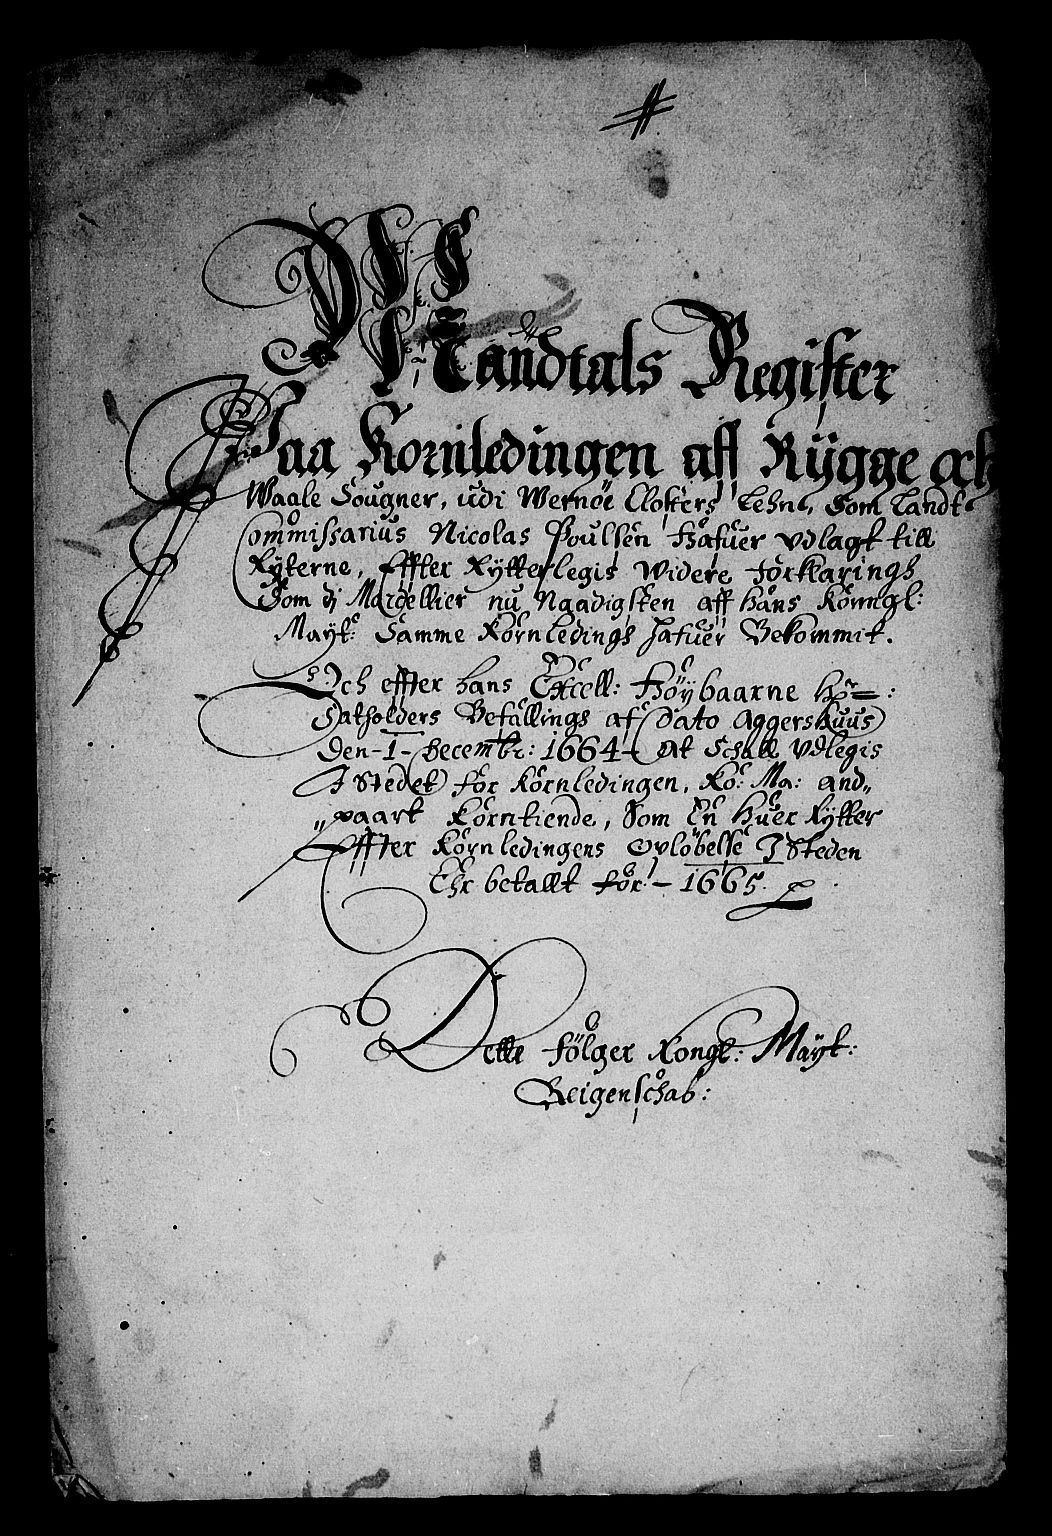 Mandtals Register
Paa Kornledingen aff Rÿgge och
Waale Sougner, udi Wernöe Closters Lehn, Som Landt
Commissarius Nicolas Poulsen Hafuer vdlagt till
Rÿterne, Effter Rÿtterlegis Widere forklarings
Som dj nu Naadigsten aff hans Konngl:
Mayt: Samme Kornledings hafuer Bekommit.
Och effter hans Excell: Höybaarne H:
Statholders Befallings af Dato Aggershuus
Den -1- Decembr: 1664 - At Schall vdlegis
I Stedet for Kornledingen, Ko: Ma: and„
„paart Korntiende, Som En Huer Rÿtter
Effter Kornledingens Ovlöbelse I Steden
Ehr betallt för - 1665.
Dette fölger Kongl: Maÿt:
Reigenschab: